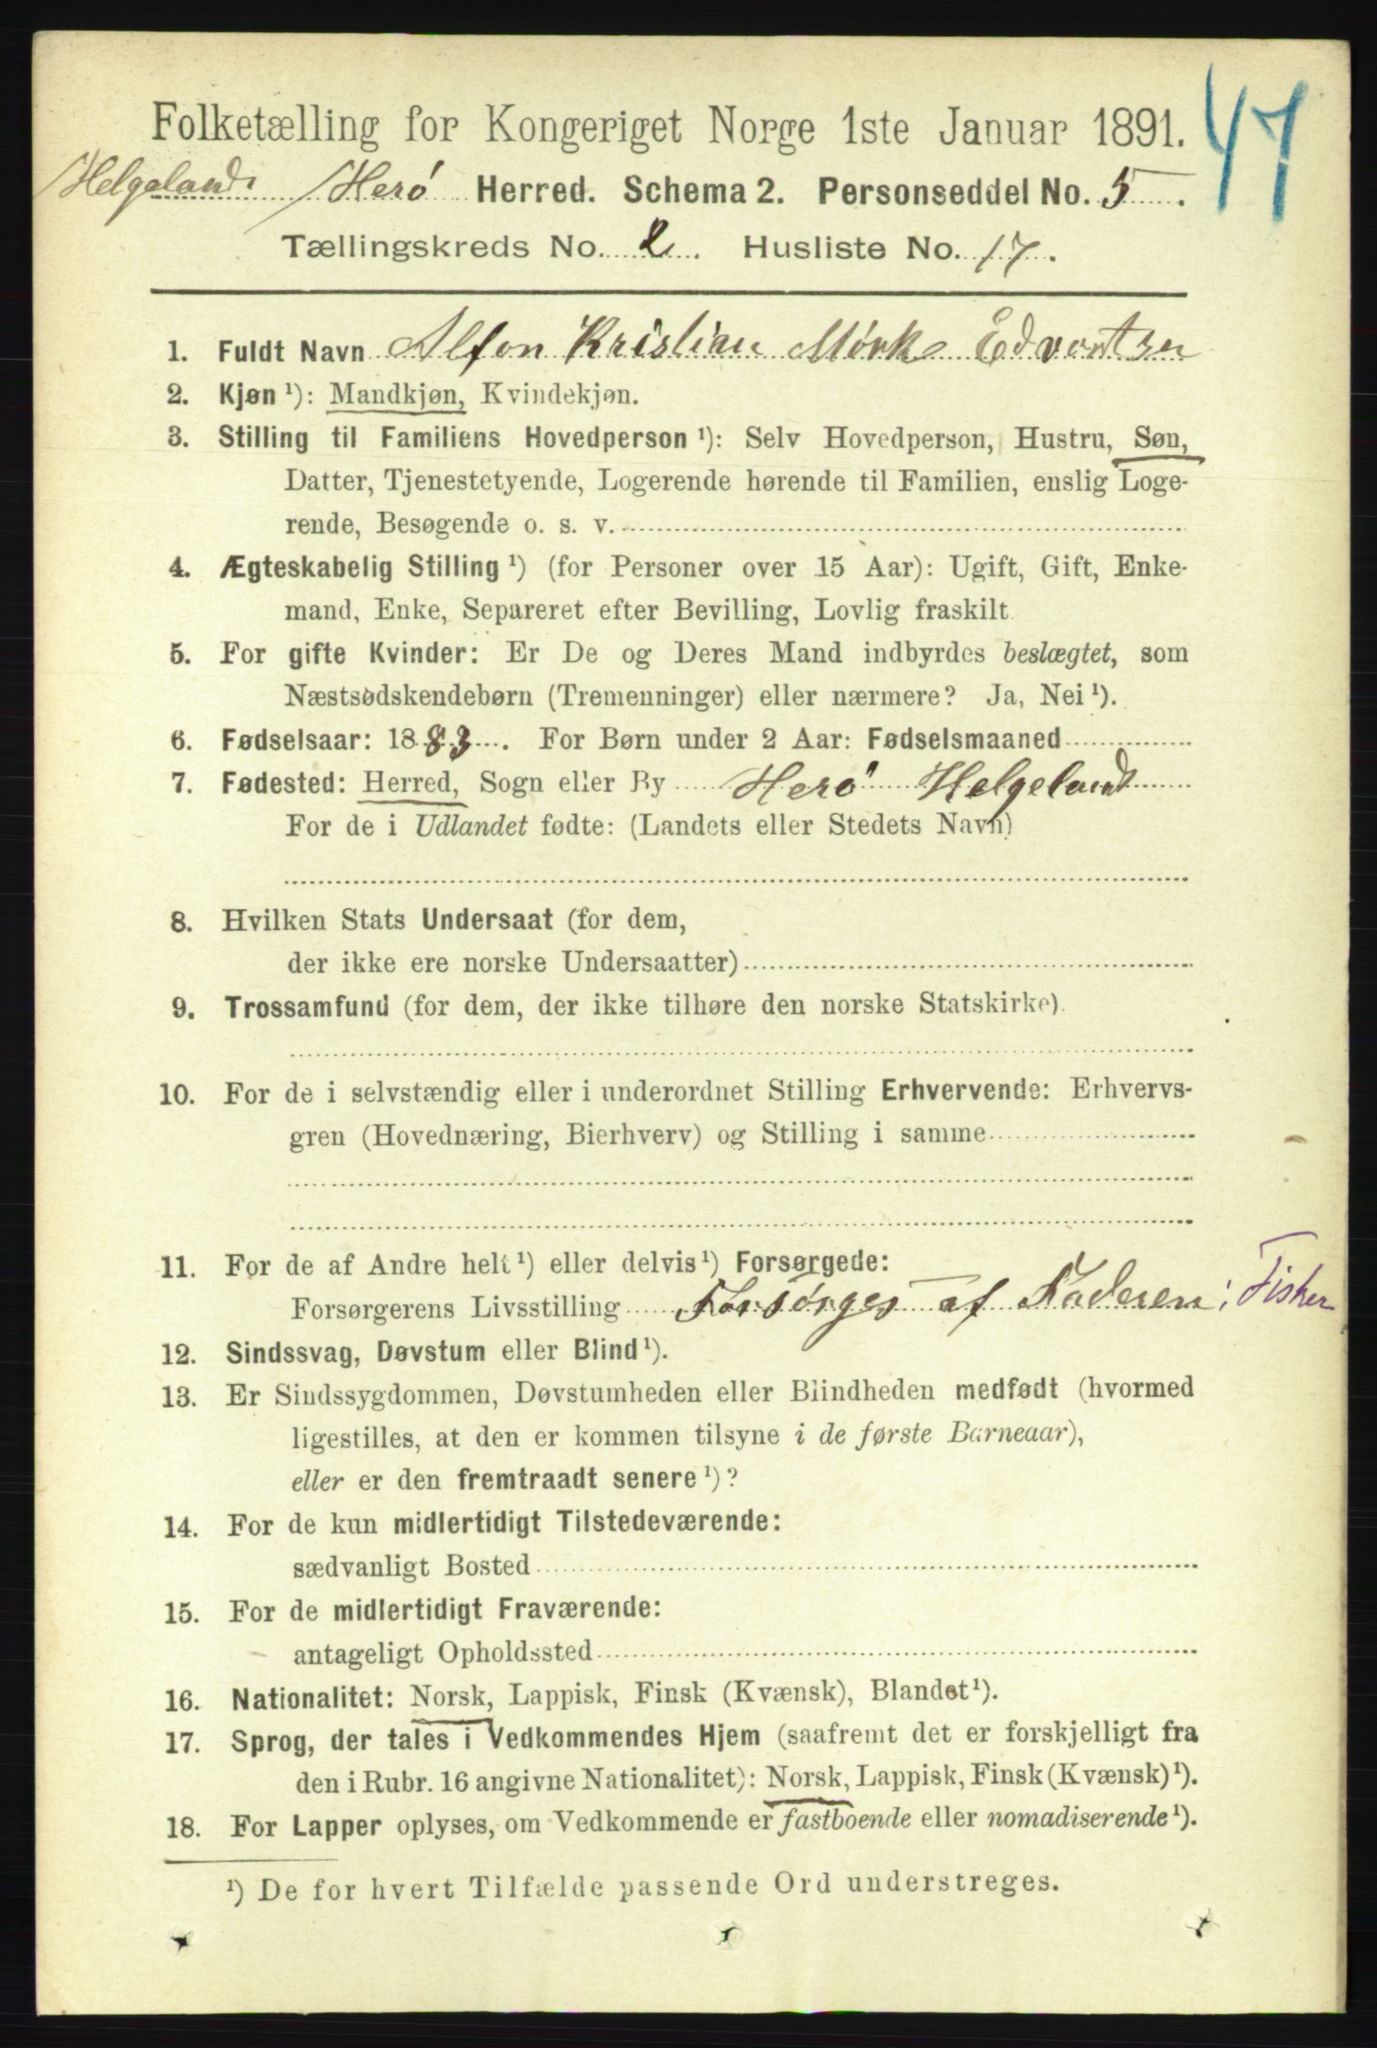 47
Folketælling for Kongeriget Norge 1ste Januar 1891.
Helgelands Herø Herred. Schema 2. Personseddel No. 5.
Tællingskreds No. 2. Husliste No. 17.
1. Fuldt Navn Alfon Kristian Mørk Edvartsen
2. Kjøn ¹): Mandkjøn, Kvindekjøn.
3. Stilling til Familiens Hovedperson ¹): Selv Hovedperson, Hustru, Søn,
Datter, Tjenestetyende, Logerende hørende til Familien, enslig Loge-
rende, Besøgende o. s. v.
4. Ægteskabelig Stilling ¹) (for Personer over 15 Aar): Ugift, Gift, Enke-
mand, Enke, Separeret efter Bevilling, Lovlig fraskilt
5. For gifte Kvinder: Er De og Deres Mand indbyrdes beslægtet, som
Næstsødskendebørn (Tremenninger) eller nærmere? Ja, Nei ¹).
6. Fødselsaar: 1883. For Børn under 2 Aar: Fødselsmaaned
7. Fødested: Herred, Sogn eller By Herø Helgeland
For de i Udlandet fødte: (Landets eller Stedets Navn)
8. Hvilken Stats Undersaat (for dem,
der ikke ere norske Undersaatter)
9. Trossamfund (for dem, der ikke tilhøre den norske Statskirke).
10. For de i selvstændig eller i underordnet Stilling Erhvervende: Erhvervs-
gren (Hovednæring, Bierhverv) og Stilling i samme
11. For de af Andre helt ¹) eller delvis ¹) Forsørgede:
Forsørgerens Livsstilling Forsørges af Faderen; Fisker
12. Sindssvag, Døvstum eller Blind ¹).
13. Er Sindssygdommen, Døvstumheden eller Blindheden medfødt (hvormed
ligestilles, at den er kommen tilsyne i de første Barneaar),
eller er den fremtraadt senere ¹)?
14. For de kun midlertidigt Tilstedeværende:
sædvanligt Bosted
15. For de midlertidigt Fraværende:
antageligt Opholdssted
16. Nationalitet: Norsk, Lappisk, Finsk (Kvænsk), Blandet ¹).
17. Sprog, der tales i Vedkommendes Hjem (saafremt det er forskjelligt fra
den i Rubr. 16 angivne Nationalitet): Norsk, Lappisk, Finsk (Kvænsk) ¹).
18. For Lapper oplyses, om Vedkommende er fastboende eller nomadiserende ¹).
¹) De for hvert Tilfælde passende Ord understreges.